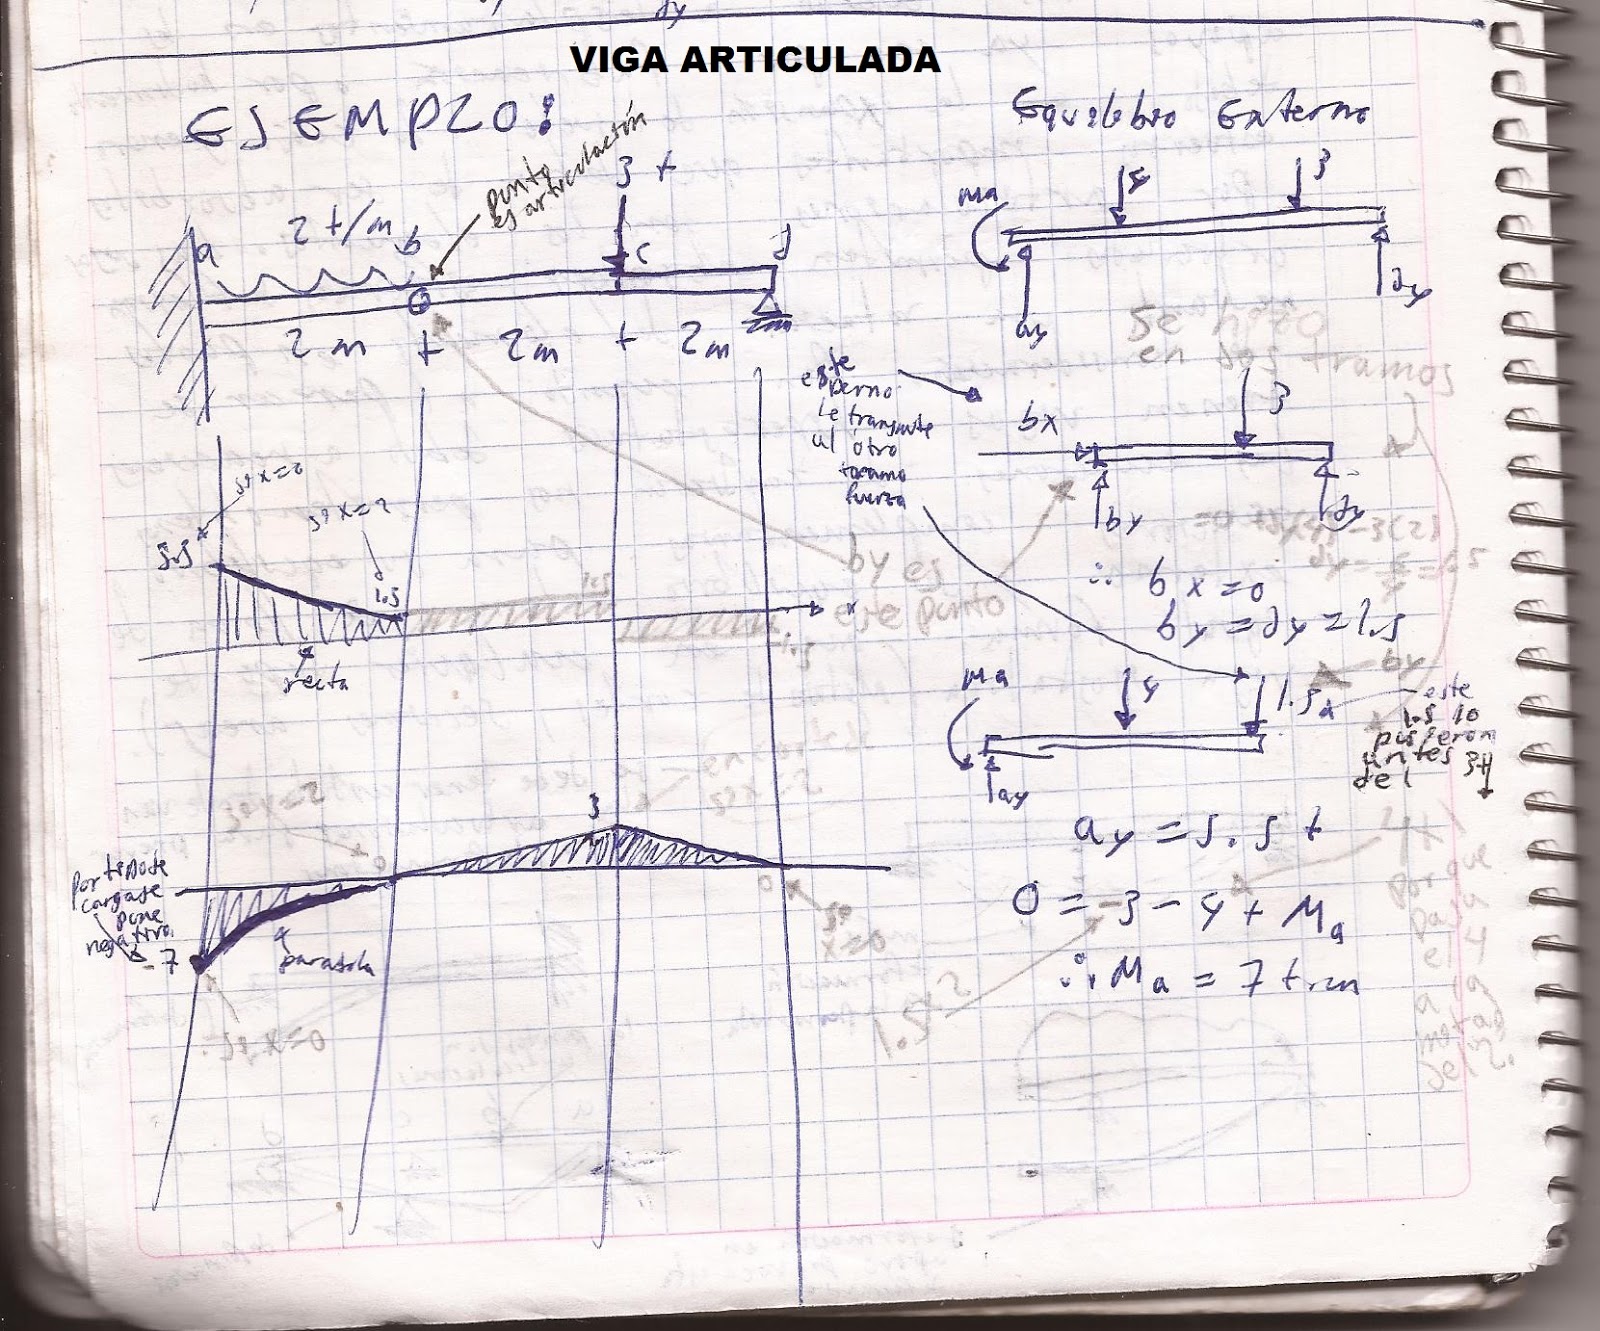 VIGA ARTICULADA
EJEMPLO!
punto
es articulación
3 t
2 t/m
a
b
c
d
2m + 2m + 2m
si x=0
si x=2
5.5
1.5
recta
1.5
1.5
x
by es
este punto
3
Por tipo de
carga se
pone
negativo
-7
parábola
0
0
si
x=0
Equilibrio Externo
Ma
4
3
ay
dy
Se hizo
en dos tramos
este
perno
le transmite
al otro
tramo
fuerza
bx
3
by
dy
∴ bx=0
by = dy = 1.5
by
Ma
4
1.5
ay
este
1.5 lo
pusieron
antes
del
3t
ay = 5.5 t
0 = -3 - 4 + Ma
∴ Ma = 7 t.m
1.5x2
4x1
porque
para
el 4
a la
mitad
del 2.